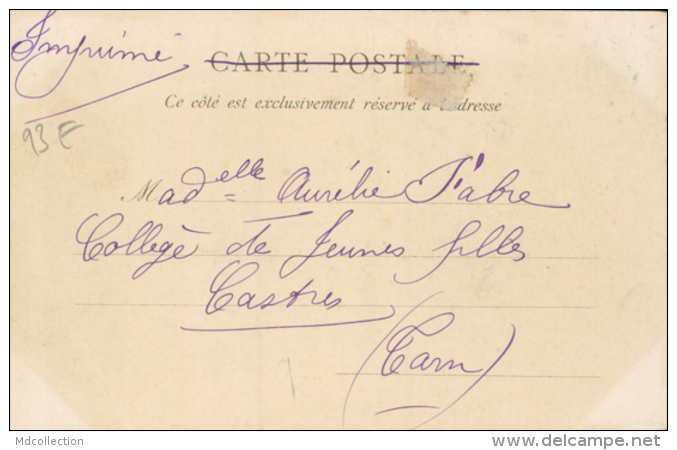 Imprimé
CARTE POSTALE
Ce côté est exclusivement réservé a l'adresse
93 F
Madelle Aurélie Fabre
Collège de Jeunes filles
Castres
(Tarn)
Mdcollection
delcampe.net